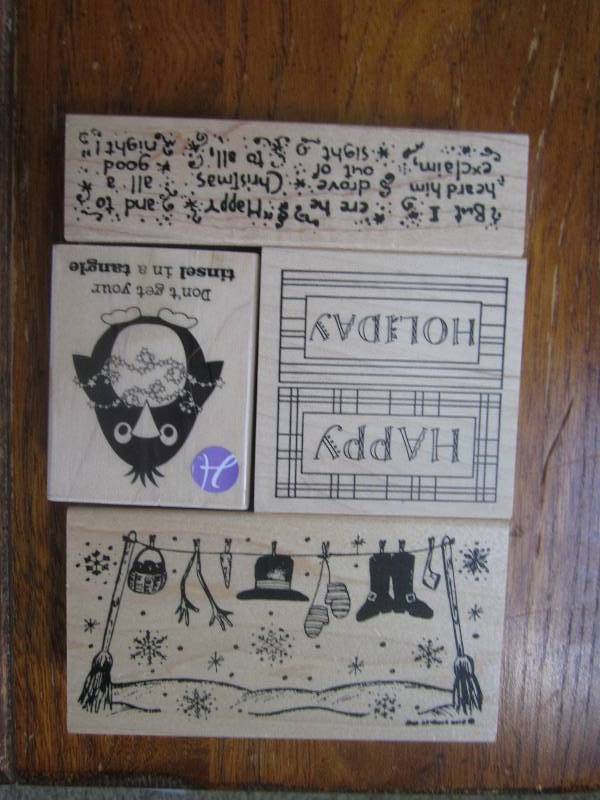 But I
heard him
exclaim,
ere he
drove
out of
sight
"Happy
Christmas
to all,
and to
all a
good
night!"
HAPPY
HOLIDAY
Don't get your
tinsel in a tangle
H